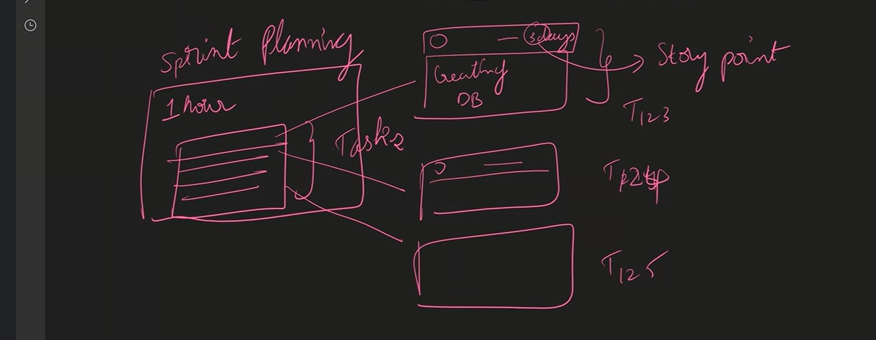 Sprint Planning
1 hour
Tasks
3 Days
Creating
DB
Story point
T123
T124
T125